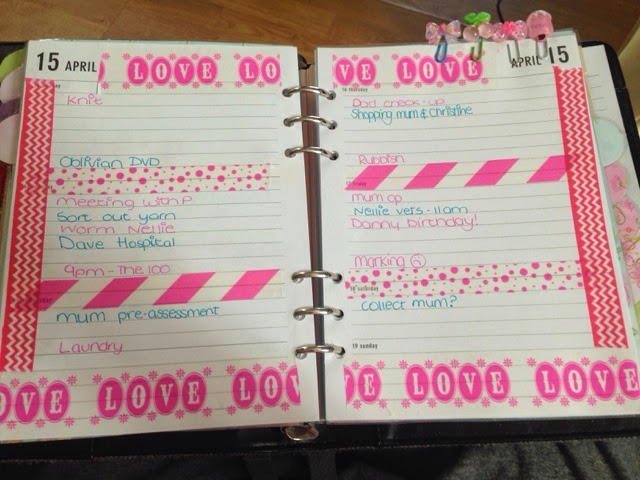 15 APRIL
LOVE LO
Knit
Oblivian DVD
Meeting with P
Sort out yarn
Worm Nellie
Dave Hospital
9pm - The 100
mum pre-assessment
Laundry
OVE LOVE LOVE LOV
VE LOVE
APRIL 15
16 thursday
Dad check-up
Shopping mum & Christine
Rubbish
friday
mum op
Nellie vets - 11am
Danny birthday!
Marking ☹
18 saturday
collect mum?
19 sunday
VE LOVE LOVE LOVE